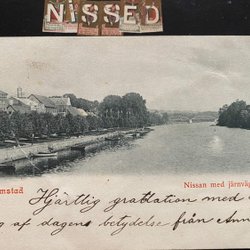 NISSED
mstad
Nissan med järnväg
Hjärtlig gratlation med
g af dagens betydelse från Ann